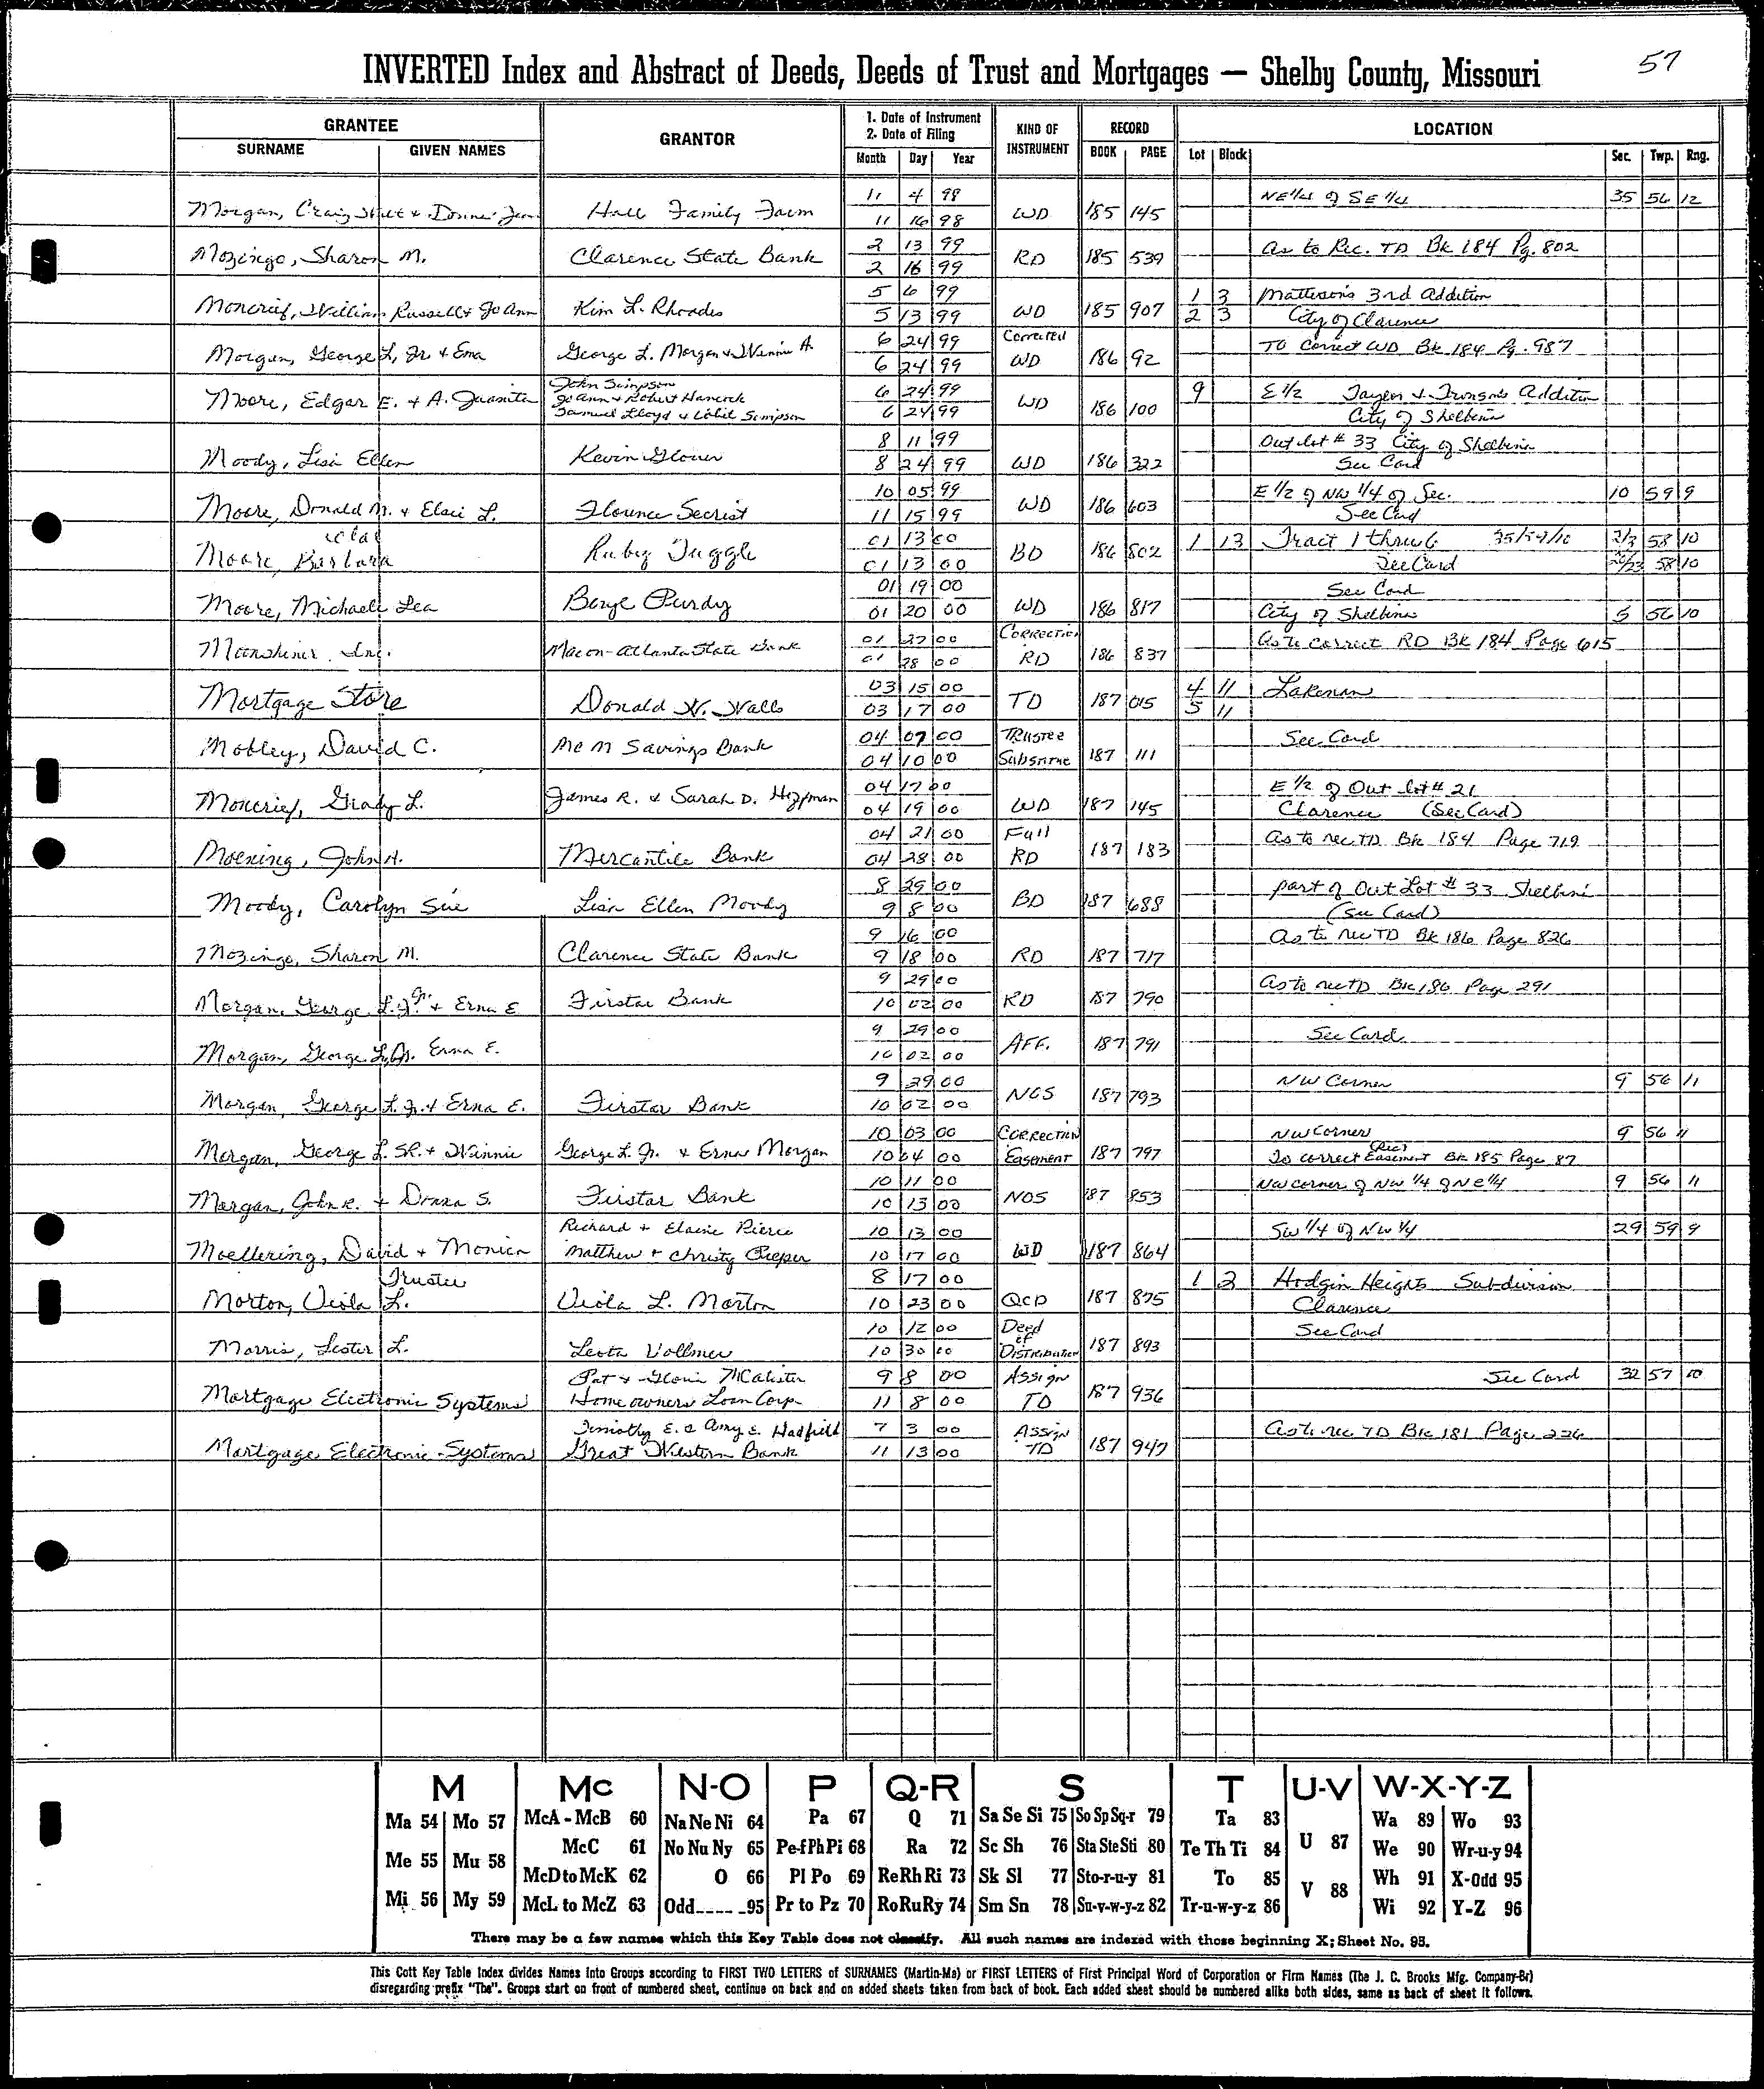 57
INVERTED Index and Abstract of Deeds, Deeds of Trust and Mortgages — Shelby County, Missouri
GRANTEE
SURNAME GIVEN NAMES
GRANTOR
1. Date of Instrument
2. Date of Filing
Month Day Year
KIND OF INSTRUMENT
RECORD
BOOK PAGE
LOCATION
Lot Block Sec. Twp. Rng.
11 4 98 NE 1/4 of SE 1/4 35 56 12
Morgan, Craig & Hall Family Farm 11 16 98 WD 185 145
2 13 99 As to Rec. TD Bk 184 Pg. 802
Mozingo, Sharon M. Clarence State Bank 2 16 99 RD 185 539
5 6 99 1 3 Matteson's 3rd Addition
Moncrief, William Russell & Jo Ann Kim L. Rhoades 5 13 99 WD 185 907 2 3 City of Clarence
6 24 99 Corrected To Correct WD Bk 184 Pg. 987
Morgan, George L, Jr. & Erna George L. Morgan & Winnie A. 6 24 99 WD 186 92
John Simpson 6 24 99 9 E 1/2 Taylor & Addition
Moore, Edgar E. & A. Juanita Jo Ann & Robert Hancock WD 186 100
Samuel Lloyd & Simpson 6 24 99 City of Shelbina
8 11 99 Out Lot # 33 City of Shelbina
Moody, Lisa Ellen Kevin Glover 8 24 99 WD 186 322 See Card
10 05 99 E 1/2 of NW 1/4 of Sec. 10 59 9
Moore, Donald M. & L. Florence Secrist 11 15 99 WD 186 603 See Card
et al 01 13 00 1 13 Tract 1 thru 6 2/3 58 10
Moore, Barbara Ruby Tuggle 01 13 00 BD 186 802 See Card 58 10
01 19 00 See Card
Moore, Michael Lea Purdy 01 20 00 WD 186 817 City of Shelbina 5 56 10
01 27 00 Correction As to correct RD Bk 184 Page 615
Moonshiner Inc. Macon-Atlanta State Bank 01 28 00 RD 186 837
03 15 00 4 11 Lakenan
Mortgage Store Donald W. Walls 03 17 00 TD 187 015 5 11
04 07 00 Trustee See Card
Mobley, David C. Savings Bank 04 10 00 187 111
04 17 00 E 1/2 of Out lot # 21
Moncrief, Grady L. James R. & Sarah D. 04 19 00 WD 187 145 Clarence (See Card)
04 21 00 Full As to rec TD Bk 184 Page 719
Moening, John H. Mercantile Bank 04 28 00 RD 187 183
8 29 00 part of Out Lot # 33 Shelbina
Moody, Carolyn Sue Lisa Ellen Moody 9 8 00 BD 187 688 (See Card)
9 16 00 As to rec TD Bk 186 Page 826
Mozingo, Sharon M. Clarence State Bank 9 18 00 RD 187 717
9 29 00 As to rec TD Bk 186 Page 291
Morgan, George L. Jr. & Erna E Firstar Bank 10 02 00 RD 187 790
9 29 00 See Card
Morgan, George L. Jr. Erna E. 10 02 00 AFF. 187 791
9 29 00 NW Corner 9 56 11
Morgan, George L. Jr. & Erna E. Firstar Bank 10 02 00 NOS 187 793
10 03 00 Correction NW Corner 9 56 11
Morgan, George L. SR. & Winnie George L. Jr. & Erna Morgan 10 04 00 Easement 187 797 To correct Easement (Rec) Bk 185 Page 87
10 11 00 NW corner of NW 1/4 of NE 1/4 9 56 11
Morgan, John R. & Donna S. Firstar Bank 10 13 00 NOS 187 853
Richard & Elaine Pierce 10 13 00 SW 1/4 of NW 1/4 29 59 9
Moellering, David & Monica Matthew & Christy Pieper 10 17 00 WD 187 864
Trustee 8 17 00 1 2 Hodgin Heights Subdivision
Morton, Viola L. Viola L. Morton 10 23 00 QCD 187 875 Clarence
10 12 00 Deed of See Card
Morris, Lester L. Leota Vollmer 10 30 00 Distribution 187 893
Pat & McAlister 9 8 00 Assign See Card 32 57 10
Mortgage Electronic Systems Homeowners Loan Corp. 11 8 00 TD 187 936
Timothy E. & Amy E. Hadfield 7 3 00 Assign As to rec TD Bk 181 Page 226
Mortgage Electronic Systems Great Western Bank 11 13 00 TD 187 947
M Mc N-O P Q-R S T U-V W-X-Y-Z
Ma 54 Mo 57 McA - McB 60 Na Ne Ni 64 Pa 67 Q 71 Sa Se Si 75 So Sp Sq-r 79 Ta 83 Wa 89 Wo 93
McC 61 No Nu Ny 65 Pe-f Ph Pi 68 Ra 72 Sc Sh 76 Sta Ste Sti 80 Te Th Ti 84 U 87 We 90 Wr-u-y 94
Me 55 Mu 58 McD to McK 62 O 66 Pl Po 69 Re Rh Ri 73 Sk Sl 77 Sto-r-u-y 81 To 85 V 88 Wh 91 X-Odd 95
Mi 56 My 59 McL to McZ 63 Odd 95 Pr to Pz 70 Ro Ru Ry 74 Sm Sn 78 Su-v-w-y-z 82 Tr-u-w-y-z 86 Wi 92 Y-Z 96
There may be a few names which this Key Table does not classify. All such names are indexed with those beginning X; Sheet No. 95.
This Cott Key Table Index divides Names into Groups according to FIRST TWO LETTERS of SURNAMES (Martin-Ma) or FIRST LETTERS of First Principal Word of Corporation or Firm Names (The J. C. Brooks Mfg. Company-Br)
disregarding prefix "The". Groups start on front of numbered sheet, continue on back and on added sheets taken from back of book. Each added sheet should be numbered alike both sides, same as back of sheet it follows.